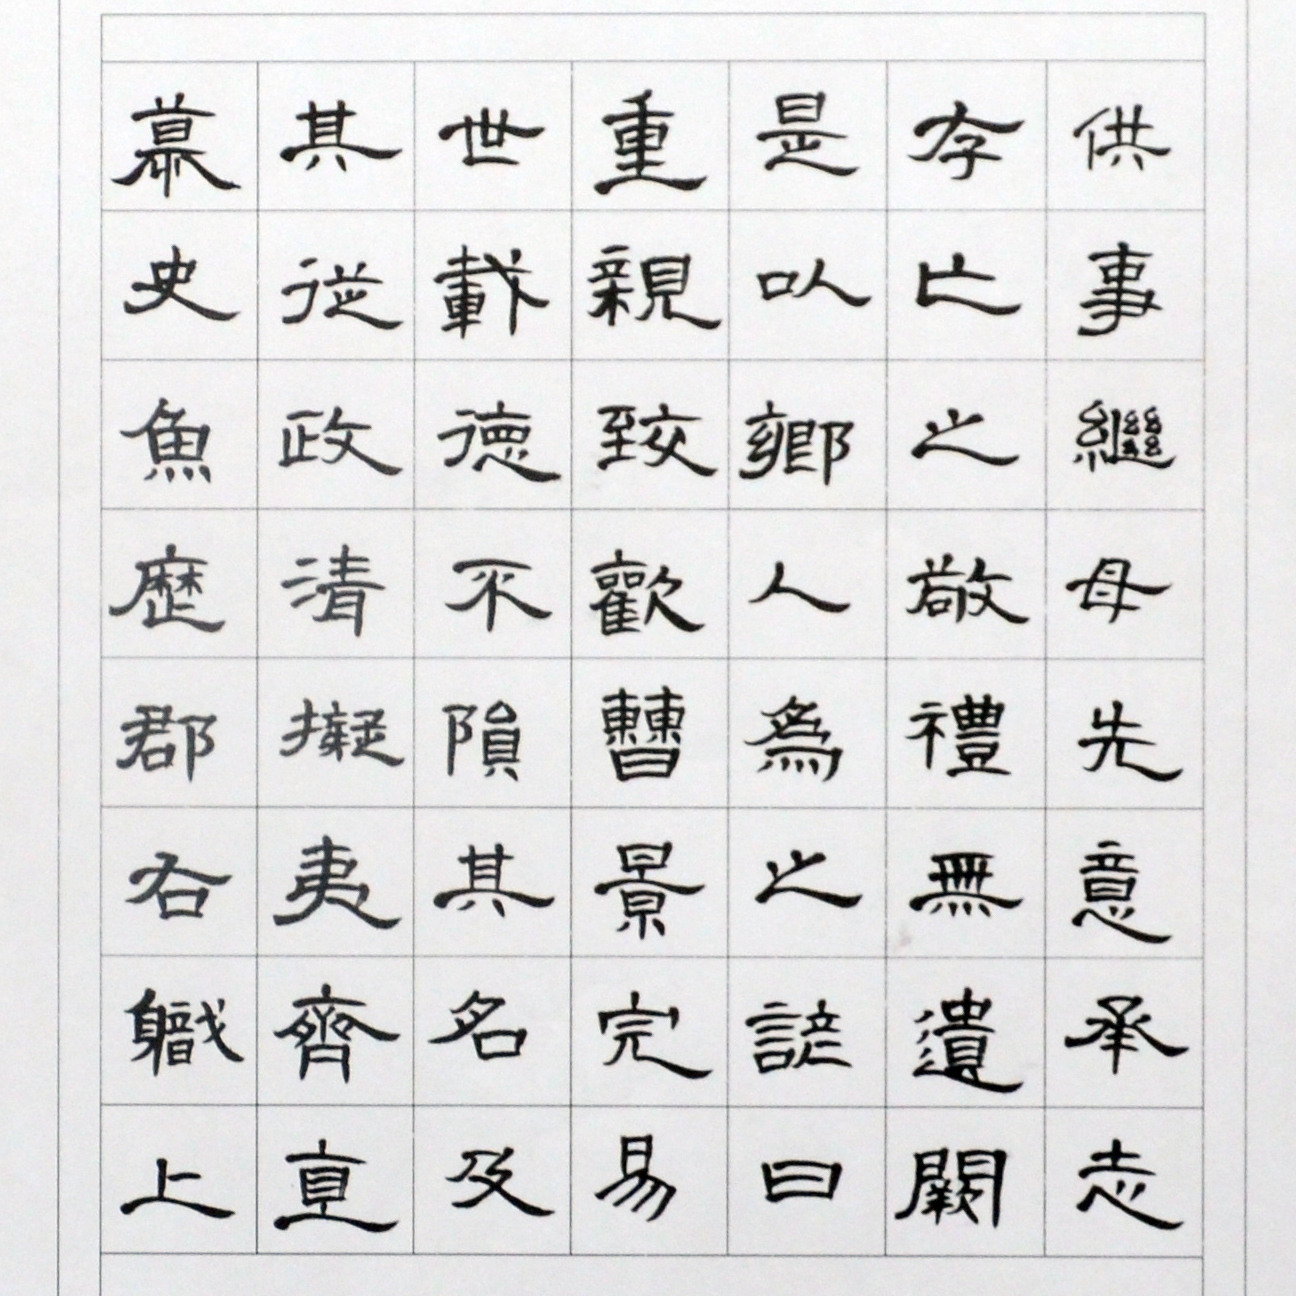 供事繼母先意承志
存亡之敬禮無遺闕
是以鄉人爲之諺曰
重親致歡曹景完易
世載德不隕其名及
其從政清擬夷齊直
慕史魚歷郡右職上